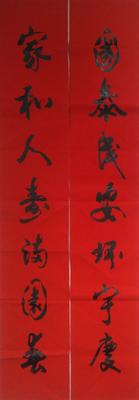 國泰民安環宇慶
家和人壽滿園春